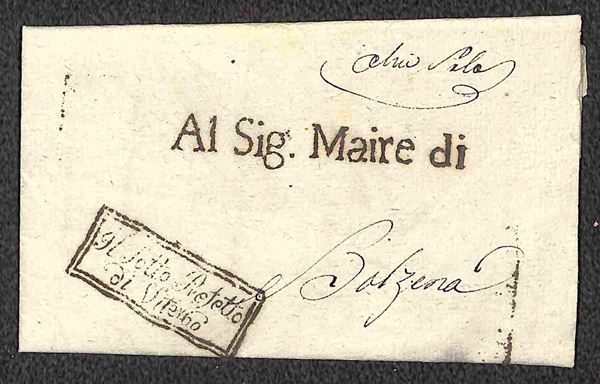 Al Sig. Maire di
Bolzena
Il Sotto Prefetto
di Viterbo